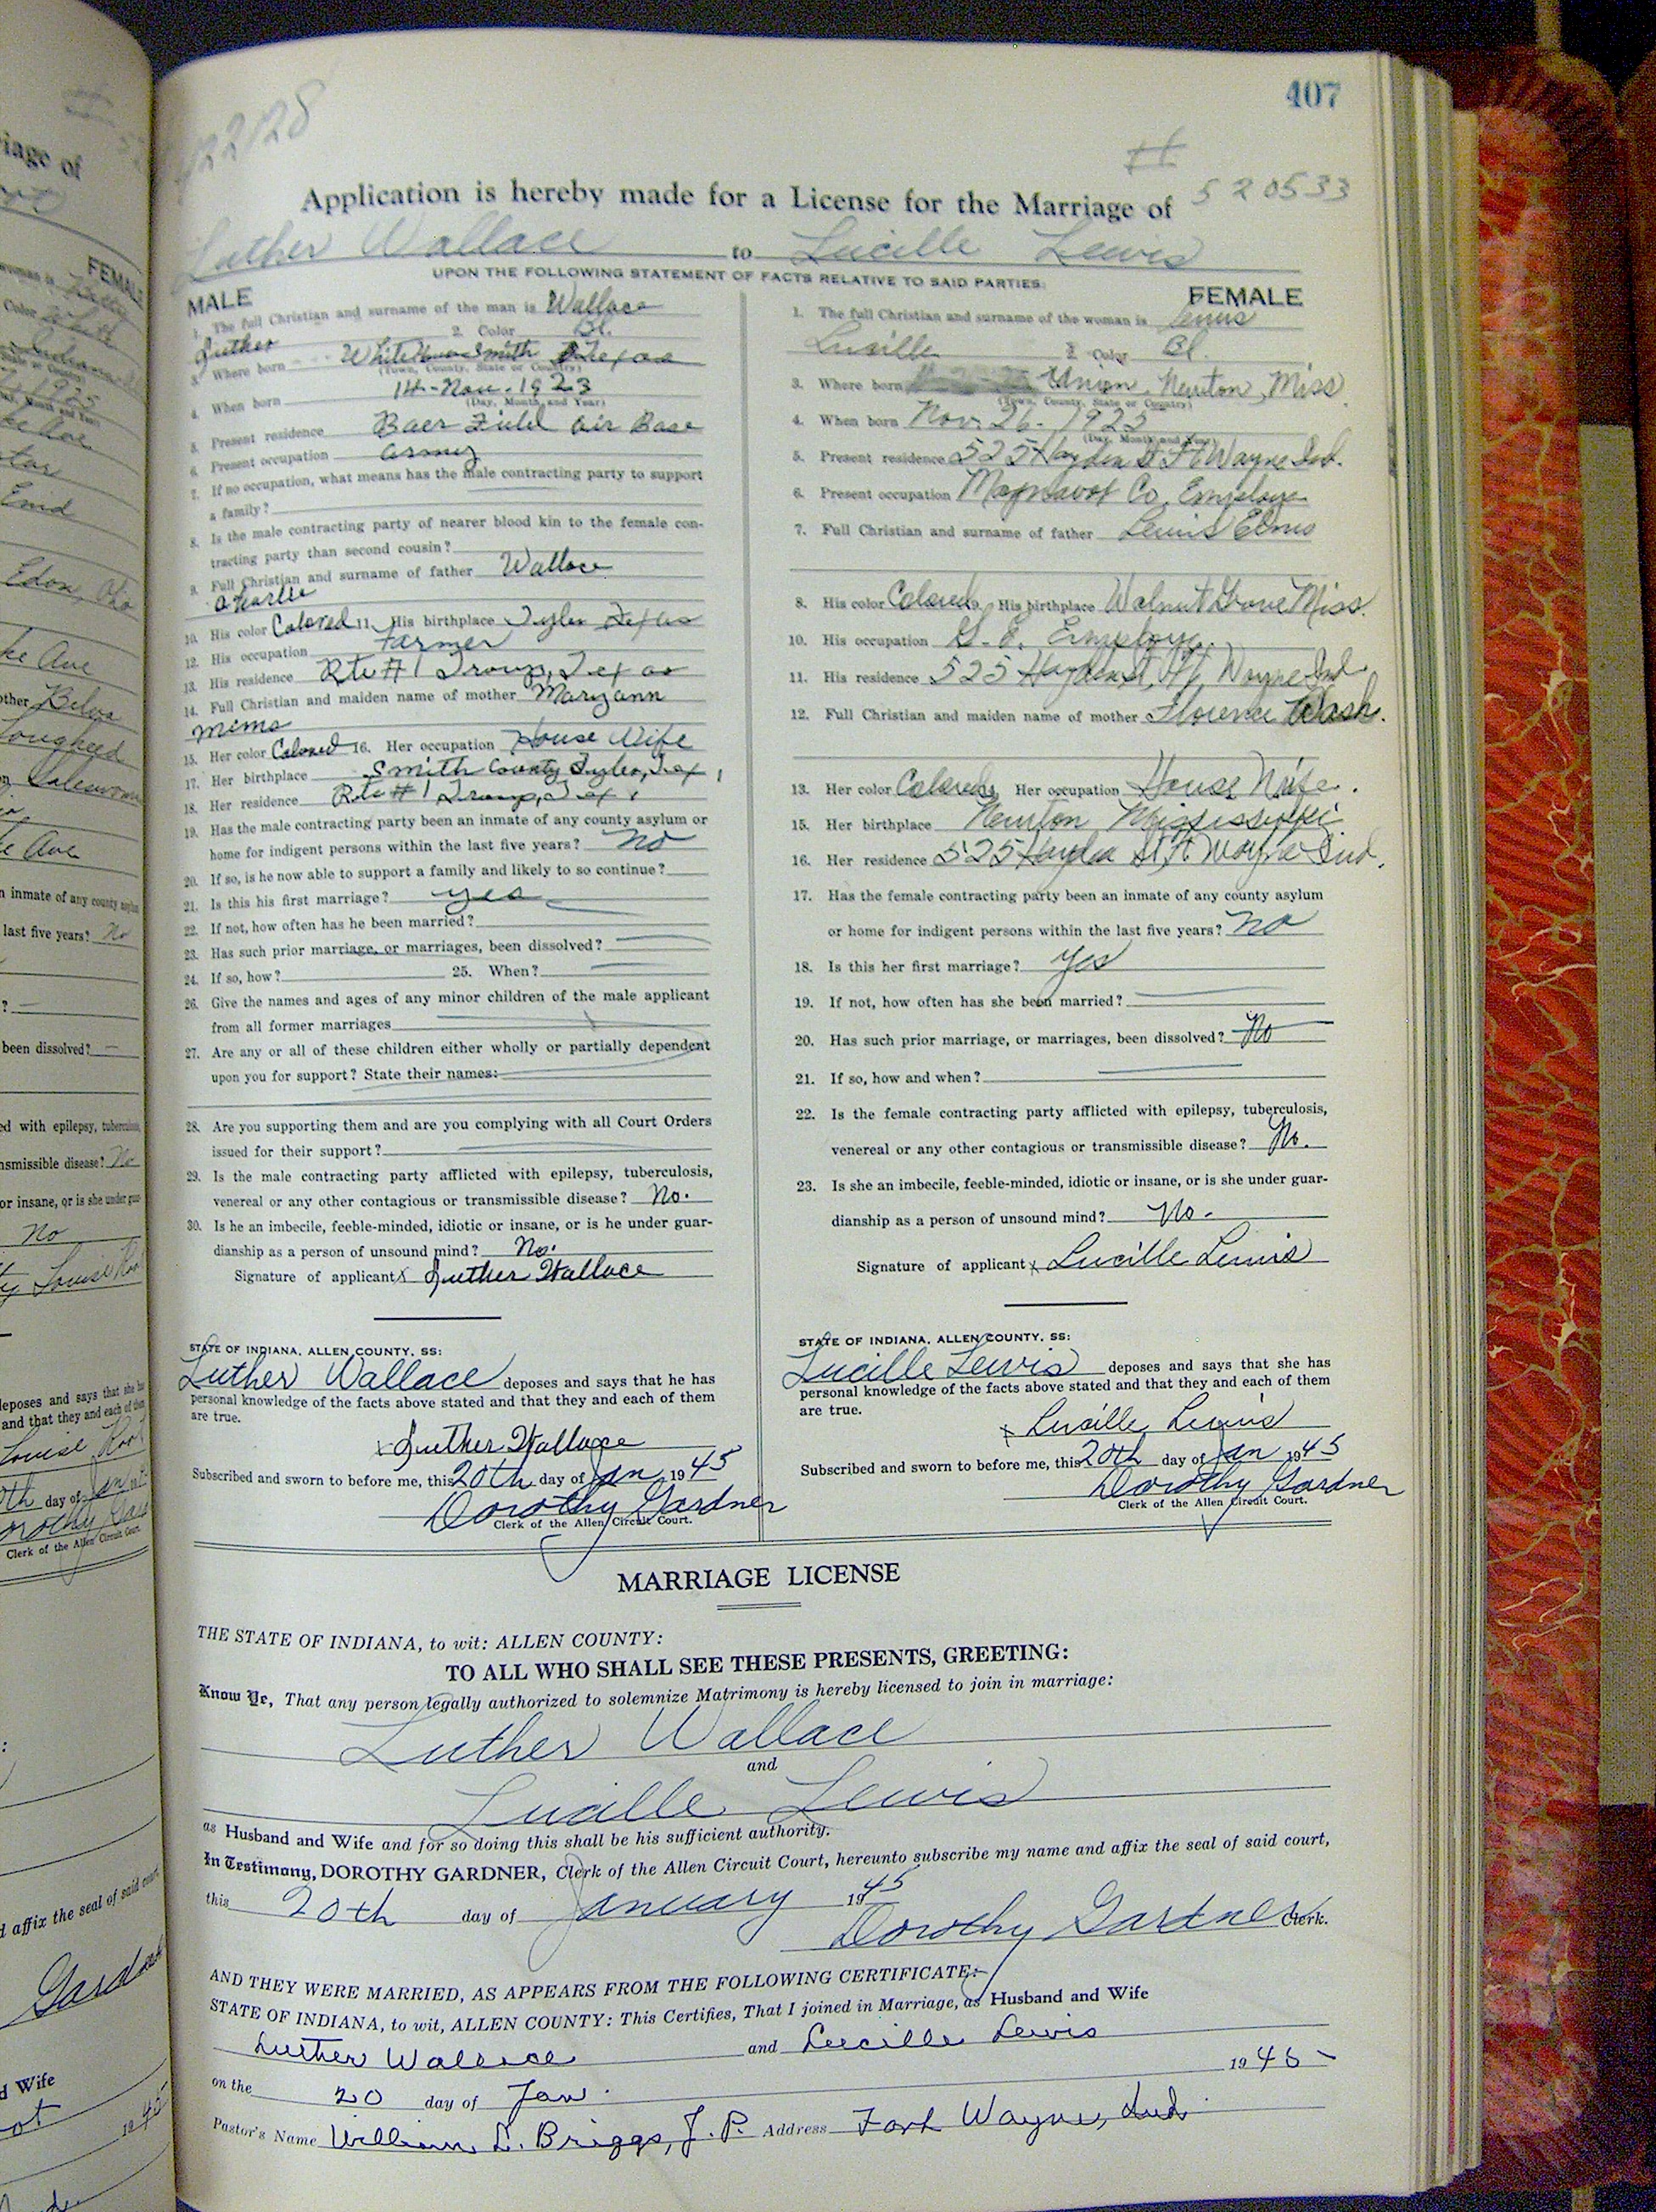 407
#
22128
520533
Application is hereby made for a License for the Marriage of
Luther Wallace to Lucille Lewis
UPON THE FOLLOWING STATEMENT OF FACTS RELATIVE TO SAID PARTIES:
MALE
1. The full Christian and surname of the man is Wallace
Luther 2. Color Bl.
3. Where born Smith Texas
(Town, County, State or Country)
4. When born 14-Nov-1923
(Day, Month, and Year)
5. Present residence Baer Field Air Base
6. Present occupation Army
7. If no occupation, what means has the male contracting party to support
a family?
8. Is the male contracting party of nearer blood kin to the female con-
tracting party than second cousin?
9. Full Christian and surname of father Wallace
Charlie
10. His color Colored 11. His birthplace Tyler Texas
12. His occupation Farmer
13. His residence Rte #1 Troup, Texas
14. Full Christian and maiden name of mother Maryann
Mims
15. Her color Colored 16. Her occupation House Wife
17. Her birthplace Smith County Tyler, Tex,
18. Her residence Rte #1 Troup, Tex,
19. Has the male contracting party been an inmate of any county asylum or
home for indigent persons within the last five years? no
20. If so, is he now able to support a family and likely to so continue?
21. Is this his first marriage? yes
22. If not, how often has he been married?
23. Has such prior marriage, or marriages, been dissolved?
24. If so, how? 25. When?
26. Give the names and ages of any minor children of the male applicant
from all former marriages
27. Are any or all of these children either wholly or partially dependent
upon you for support? State their names:
28. Are you supporting them and are you complying with all Court Orders
issued for their support?
29. Is the male contracting party afflicted with epilepsy, tuberculosis,
venereal or any other contagious or transmissible disease? No.
30. Is he an imbecile, feeble-minded, idiotic or insane, or is he under guar-
dianship as a person of unsound mind? No.
Signature of applicant x Luther Wallace
STATE OF INDIANA, ALLEN COUNTY, SS:
Luther Wallace deposes and says that he has
personal knowledge of the facts above stated and that they and each of them
are true.
x Luther Wallace
Subscribed and sworn to before me, this 20th day of Jan 1945
Dorothy Gardner
Clerk of the Allen Circuit Court.
FEMALE
1. The full Christian and surname of the woman is Lewis
Lucille 2. Color Bl.
3. Where born Union, Newton, Miss.
(Town, County, State or Country)
4. When born Nov. 26 - 1925
(Day, Month and Year)
5. Present residence 525 Hayden St Ft Wayne Ind.
6. Present occupation Magnavox Co. Employe
7. Full Christian and surname of father Lewis Elmo
8. His color Colored 9. His birthplace Walnut Grove Miss.
10. His occupation G. E. Employe.
11. His residence 525 Hayden St, Ft, Wayne Ind
12. Full Christian and maiden name of mother Florence Wash.
13. Her color Colored Her occupation House Wife.
15. Her birthplace Newton Mississippi
16. Her residence 525 Hayden St, Ft Wayne Ind.
17. Has the female contracting party been an inmate of any county asylum
or home for indigent persons within the last five years? no
18. Is this her first marriage? yes
19. If not, how often has she been married?
20. Has such prior marriage, or marriages, been dissolved? No
21. If so, how and when?
22. Is the female contracting party afflicted with epilepsy, tuberculosis,
venereal or any other contagious or transmissible disease? No.
23. Is she an imbecile, feeble-minded, idiotic or insane, or is she under guar-
dianship as a person of unsound mind? No.
Signature of applicant x Lucille Lewis
STATE OF INDIANA, ALLEN COUNTY, SS:
Lucille Lewis deposes and says that she has
personal knowledge of the facts above stated and that they and each of them
are true.
x Lucille Lewis
Subscribed and sworn to before me, this 20th day of Jan 1945
Dorothy Gardner
Clerk of the Allen Circuit Court.
MARRIAGE LICENSE
THE STATE OF INDIANA, to wit: ALLEN COUNTY:
TO ALL WHO SHALL SEE THESE PRESENTS, GREETING:
Know Ye, That any person legally authorized to solemnize Matrimony is hereby licensed to join in marriage:
Luther Wallace
and
Lucille Lewis
as Husband and Wife and for so doing this shall be his sufficient authority.
In Testimony, DOROTHY GARDNER, Clerk of the Allen Circuit Court, hereunto subscribe my name and affix the seal of said court,
this 20th day of January 1945
Dorothy Gardner Clerk.
AND THEY WERE MARRIED, AS APPEARS FROM THE FOLLOWING CERTIFICATE:
STATE OF INDIANA, to wit, ALLEN COUNTY: This Certifies, That I joined in Marriage, as Husband and Wife
Luther Wallace and Lucille Lewis
on the 20 day of Jan. 1945
Pastor's Name William L. Briggs, J. P. Address Fort Wayne, Ind.